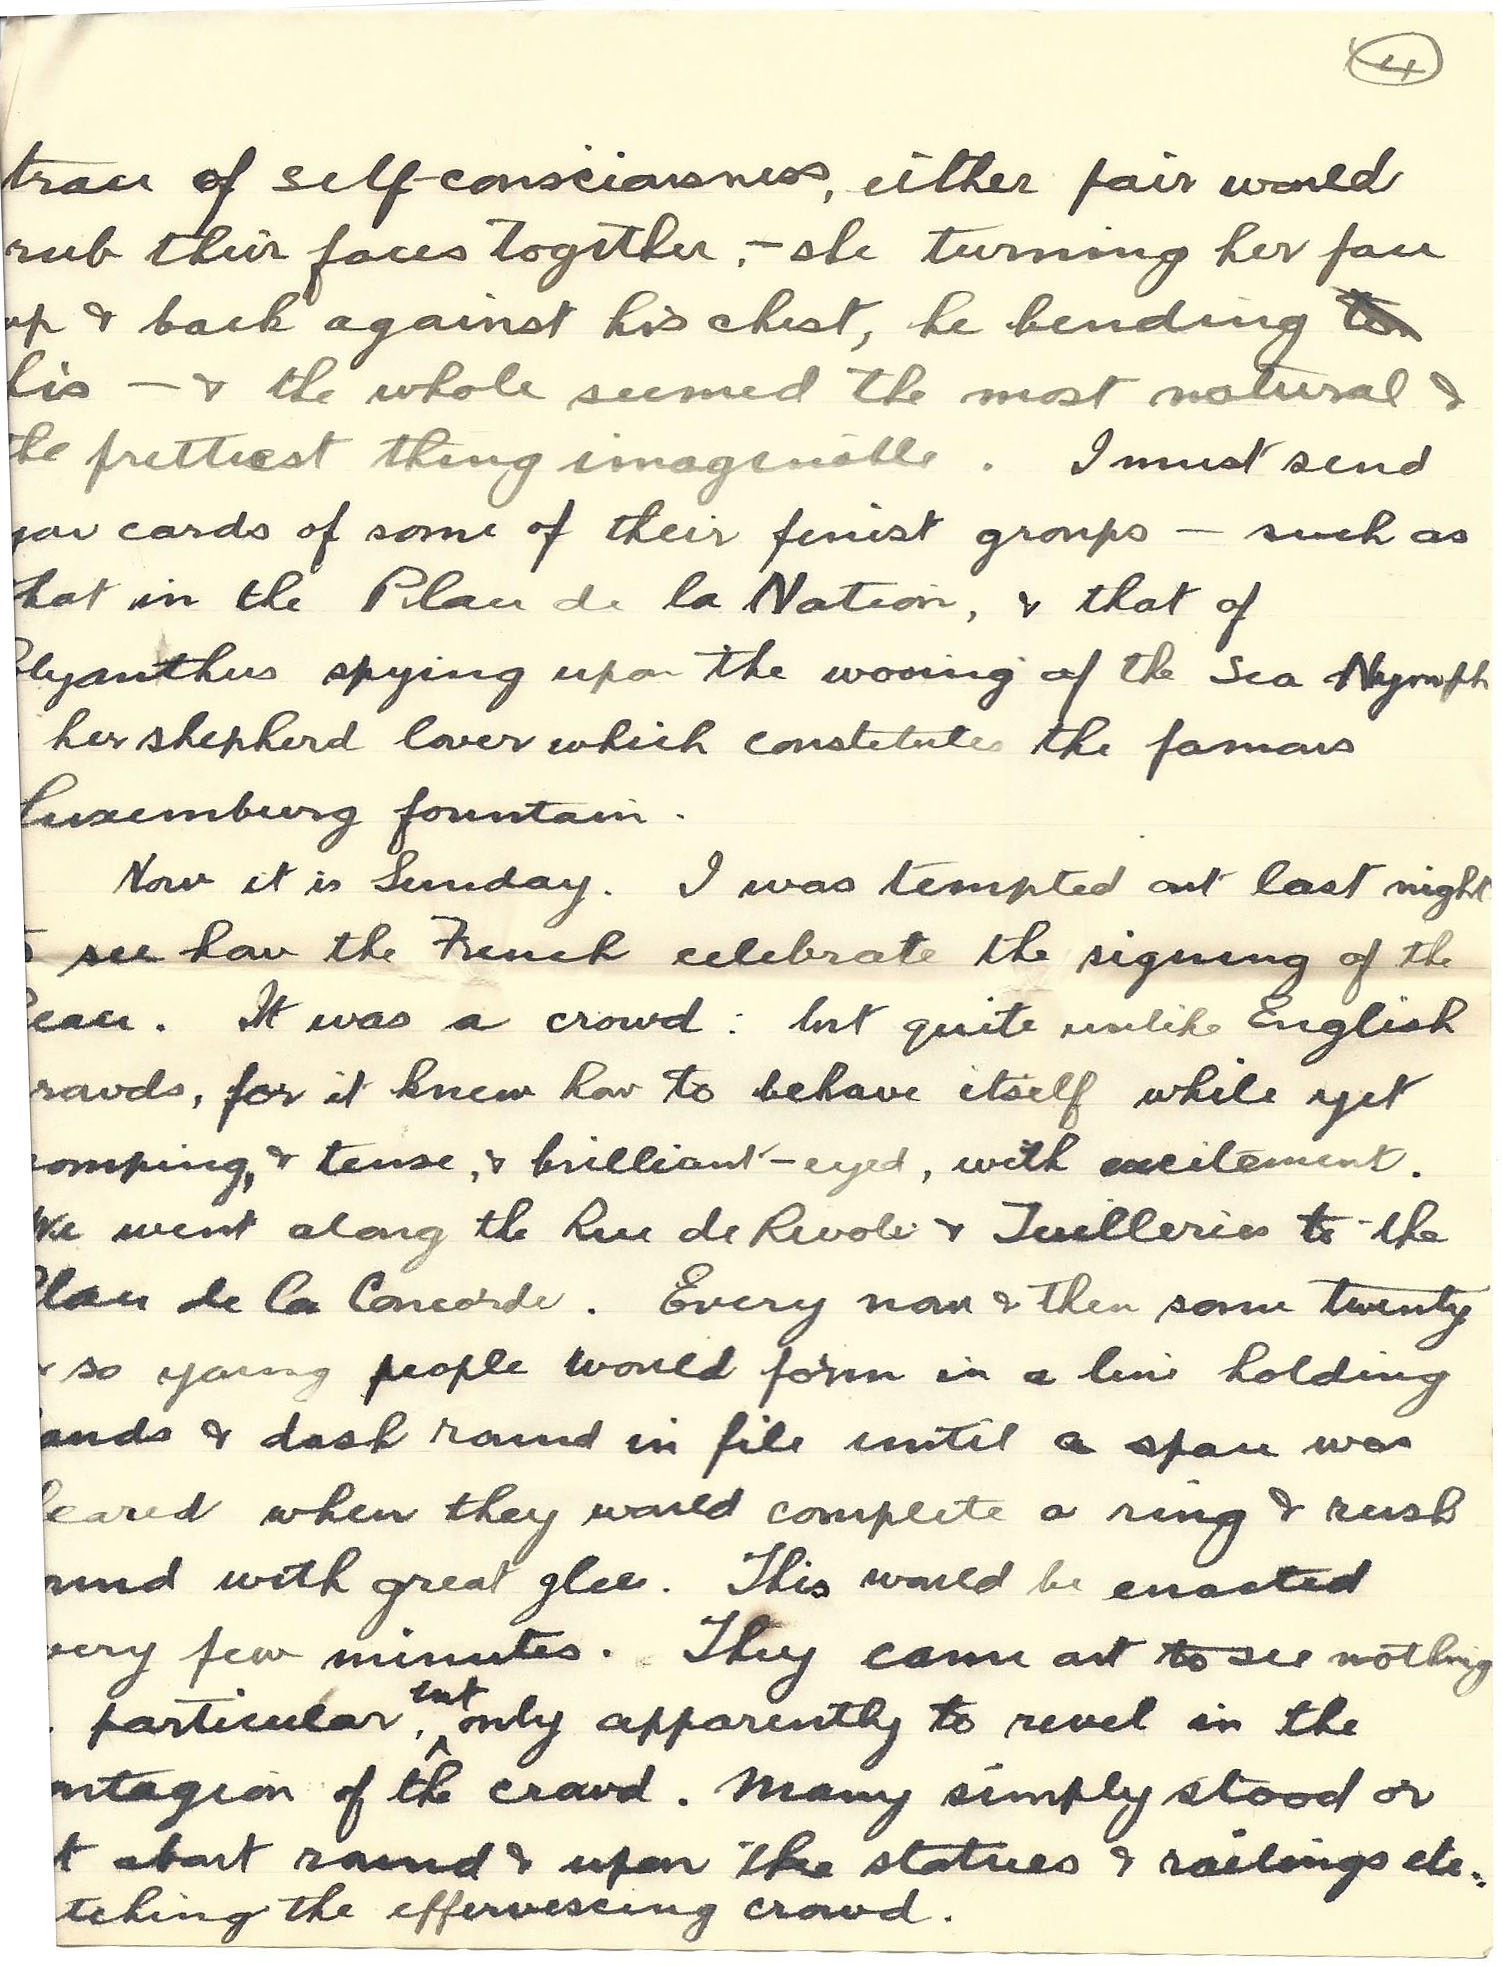 4
trace of self-consciousness, either pair would
rub their faces together, – she turning her face
up & back against his chest, he bending to
his – & the whole seemed the most natural &
the prettiest thing imaginable. I must send
you cards of some of their finest groups – such as
that in the Place de la Nation, & that of
olyanthus spying upon the wooing of the Sea Nymph
her shepherd lover which constitutes the famous
Luxemburg fountain.
Now it is Sunday. I was tempted out last night
to see how the French celebrate the signing of the
Peace. It was a crowd: but quite unlike English
rowds, for it knew how to behave itself while yet
romping, & tense, & brilliant-eyed, with excitement.
We went along the Rue de Rivoli & Tuilleries to the
Place de la Concorde. Every now & then some twenty
or so young people would form in a line holding
ands & dash round in file until a space was
leared when they would complete a ring & rush
ound with great glee. This would be enacted
very few minutes. They came out to see nothing
particular, but only apparently to revel in the
ontagion of the crowd. Many simply stood or
t about round & upon the statues & railings etc.
tching the effervescing crowd.